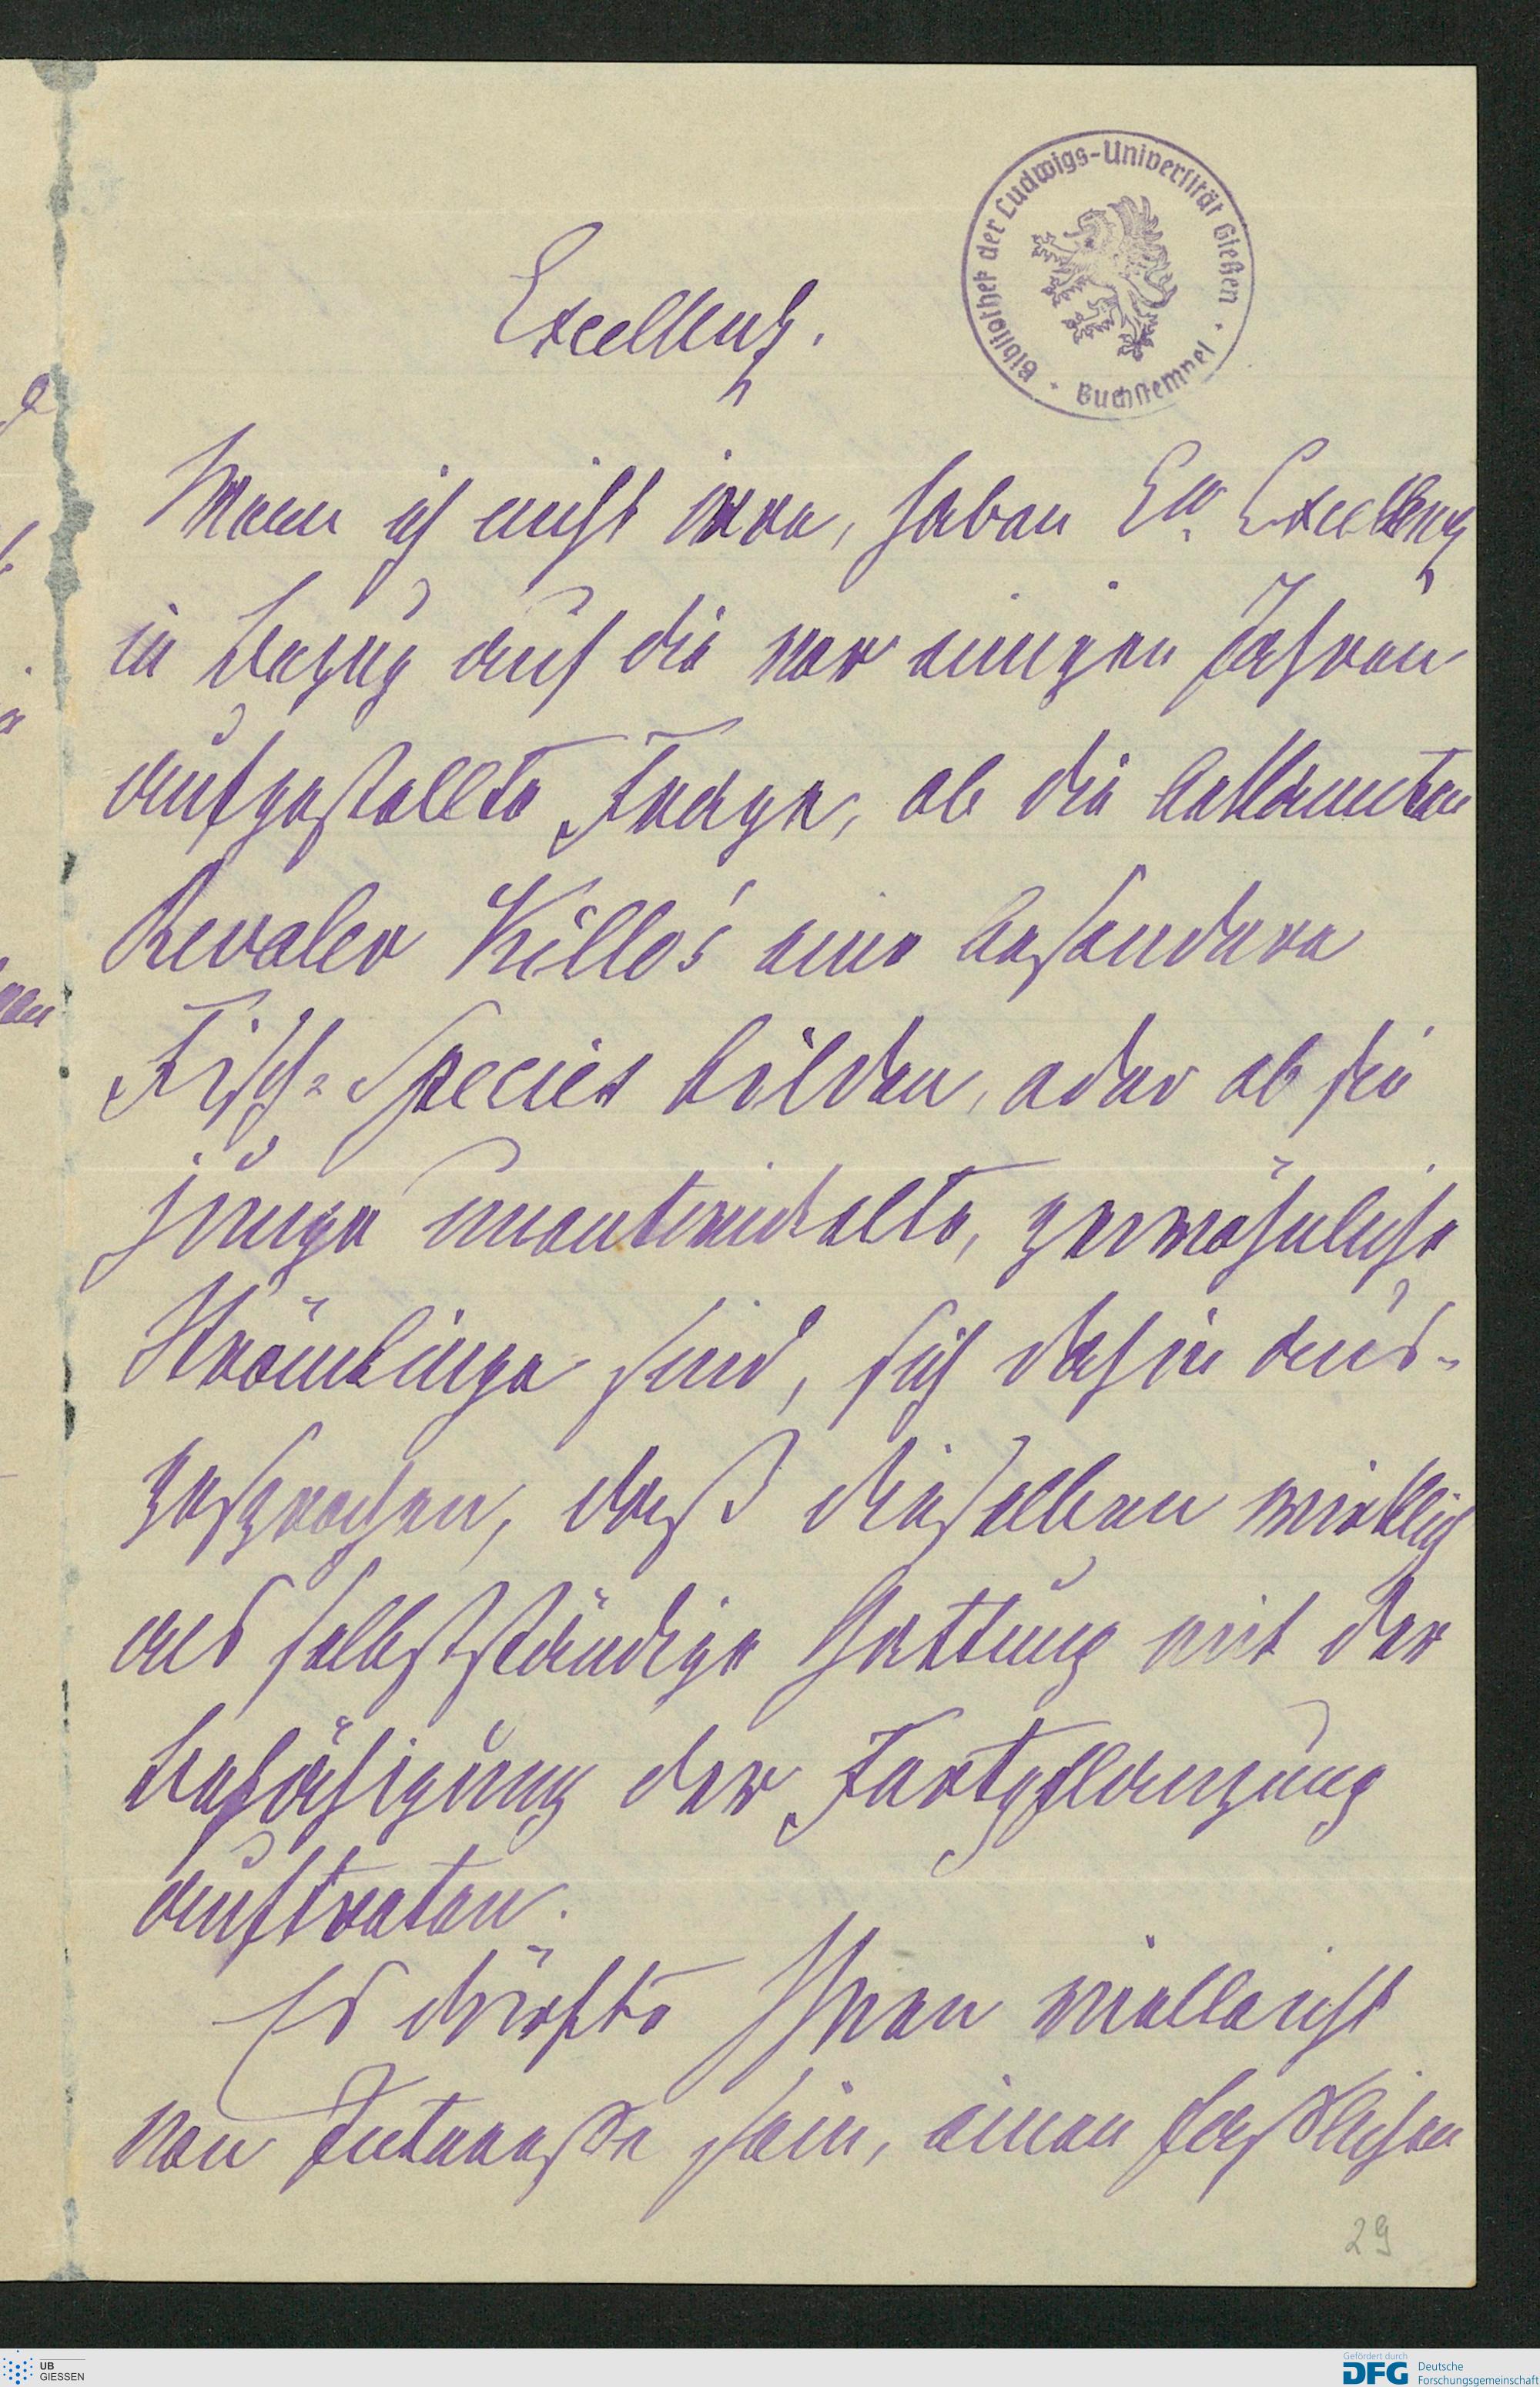 Excellenz.
Bibliothek der Ludwigs-Universität Gießen · Buchstempel ·
Wenn ich nicht irre, haben Ew. Excellenz
in Bezug auf die vor einigen Jahren
aufgestellte Frage, ob die bekannten
Revaler Killo's eine besondere
Fisch-Species bilden, oder ob sie
junge unentwickelte, gewöhnliche
Strömlinge sind, sich dahin aus-
gesprochen, daß dieselben wirklich
als selbstständige Gattung mit der
Befähigung der Fortpflanzung
auftreten.
Es dürfte Ihnen vielleicht
von Interesse sein, einen
29
UB
GIESSEN
Gefördert durch
DFG Deutsche
Forschungsgemeinschaft